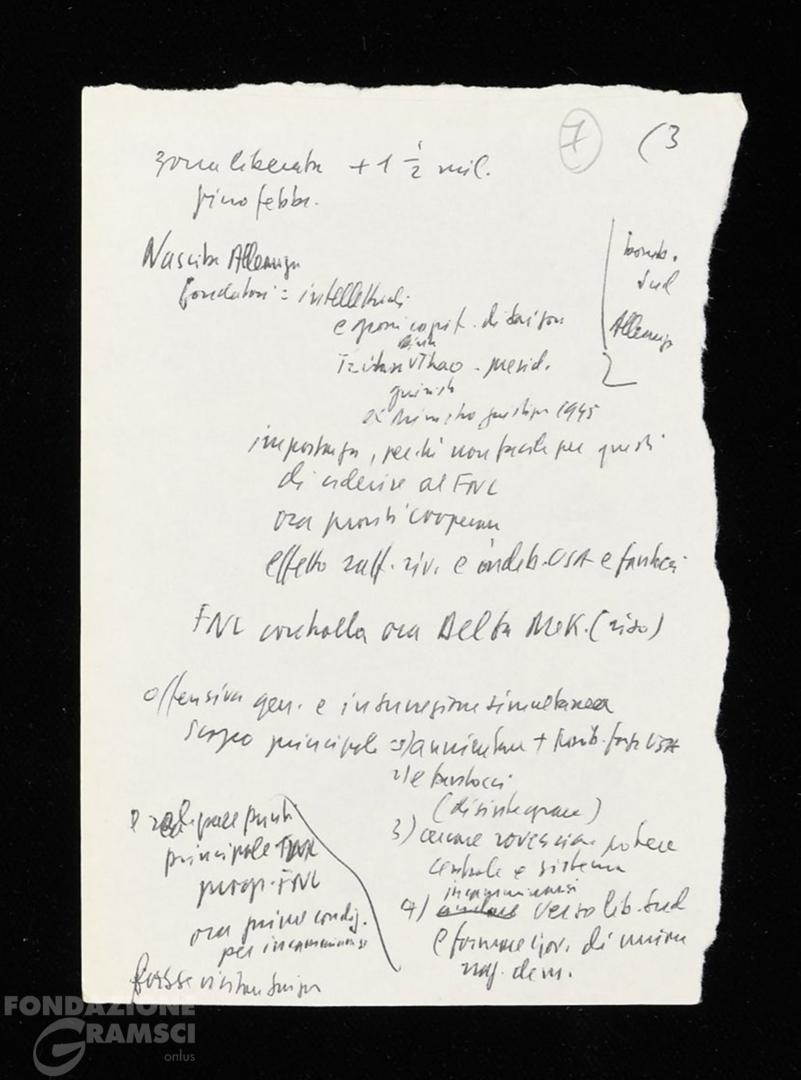 7 (3
zona liberata + 1 1/2 mil.
fino febbr.
Nascita Alleanza
fondatori = intellettuali
bomb.
Sud
Alleanza
e capit. di Saigon
Thao - presid.
giustizia 1945
importanza, perché non facile per questi
di aderire al FNL
ora pronti cooperare
effetto raff. riv. e indeb. USA e fantocci
FNL controlla ora Delta Mek. (riso)
offensiva gen. e insurrezione simultanea
Scopo principale 1) annientare + possib. forze USA
2) e fantocci
(disintegrare)
3) rovesciare potere
centrale e sistema
incamminarsi
4) verso lib. Sud
e formare gov. di unione
naz. dem.
principale FNL
progr. FNL
ora prime condiz.
per incamminarsi
FONDAZIONE
GRAMSCI
onlus